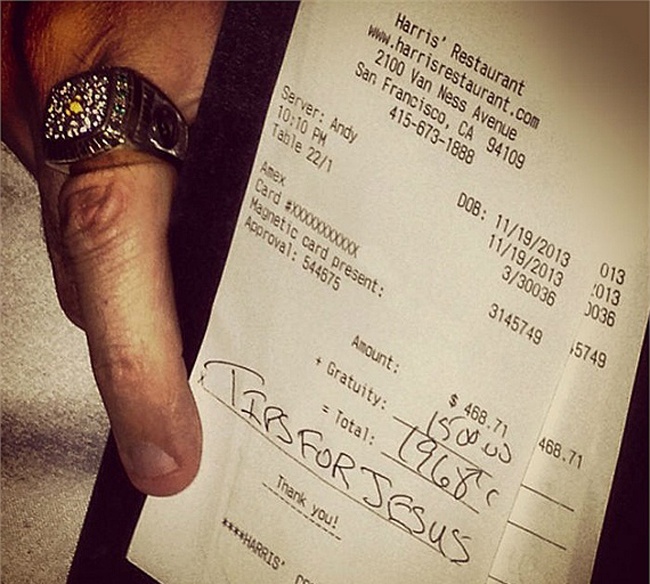 Harris' Restaurant
www.harrisrestaurant.com
2100 Van Ness Avenue
San Francisco, CA 94109
415-673-1888
Server: Andy
DOB: 11/19/2013
10:10 PM
11/19/2013
Table 22/1
3/30036
Amex
3145749
Card #XXXXXXXXXXX
Magnetic card present:
Approval: 544675
Amount: $ 468.71
+ Gratuity: 1500.00
= Total:
x TIPS FOR JESUS
Thank you!
****HARRIS'
013
2013
0036
45749
468.71